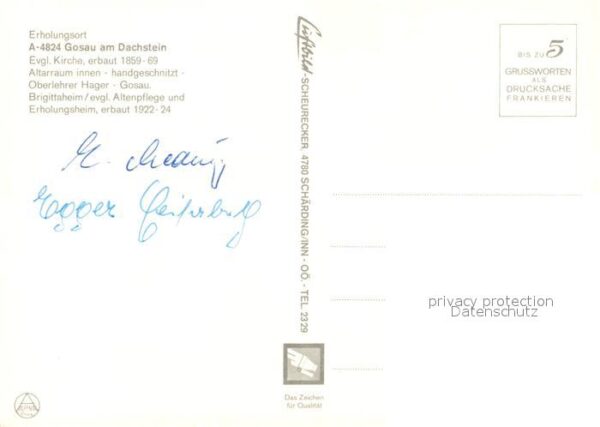 Erholungsort
A-4824 Gosau am Dachstein
Evgl. Kirche, erbaut 1859-69
Altarraum innen - handgeschnitzt -
Oberlehrer Hager - Gosau.
Brigittaheim/evgl. Altenpflege und
Erholungsheim, erbaut 1922-24
Egger
Luftbild-SCHEURECKER, 4780 SCHÄRDING/INN - OÖ. - TEL. 2329
BIS ZU 5
GRUSSWORTEN
ALS
DRUCKSACHE
FRANKIEREN
privacy protection
Datenschutz
Das Zeichen
für Qualität